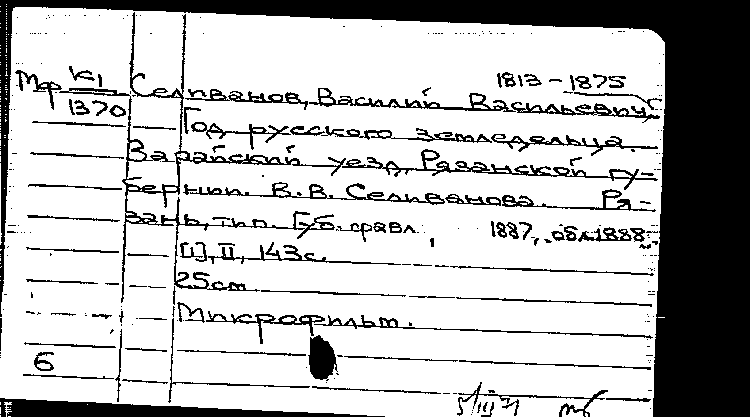 1813-1875
Мф К1/1370 Селиванов, Василий Васильевич,
Год русского земледельца.
Зарайский уезд, Рязанской гу-
бернии. В.В. Селиванова. Ря-
зань, тип. Губ. правл., 1887, обл. 1888.
[1], II, 143с.
25cm
Микрофильм.
6
5/III 71